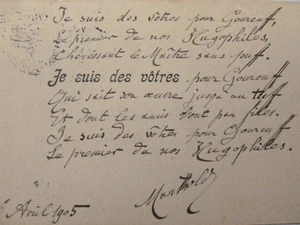 Je suis des vôtres pour Goureuf,
Le premier de nos Hugophiles,
Chérissant le Maître sans puf.
Je suis des vôtres pour Goureuf
Qui sait son œuvre jusqu'au tuf
Et dont les amis vont par files.
Je suis des vôtres pour Goureuf
Le premier de nos Hugophiles.
Avril 1905